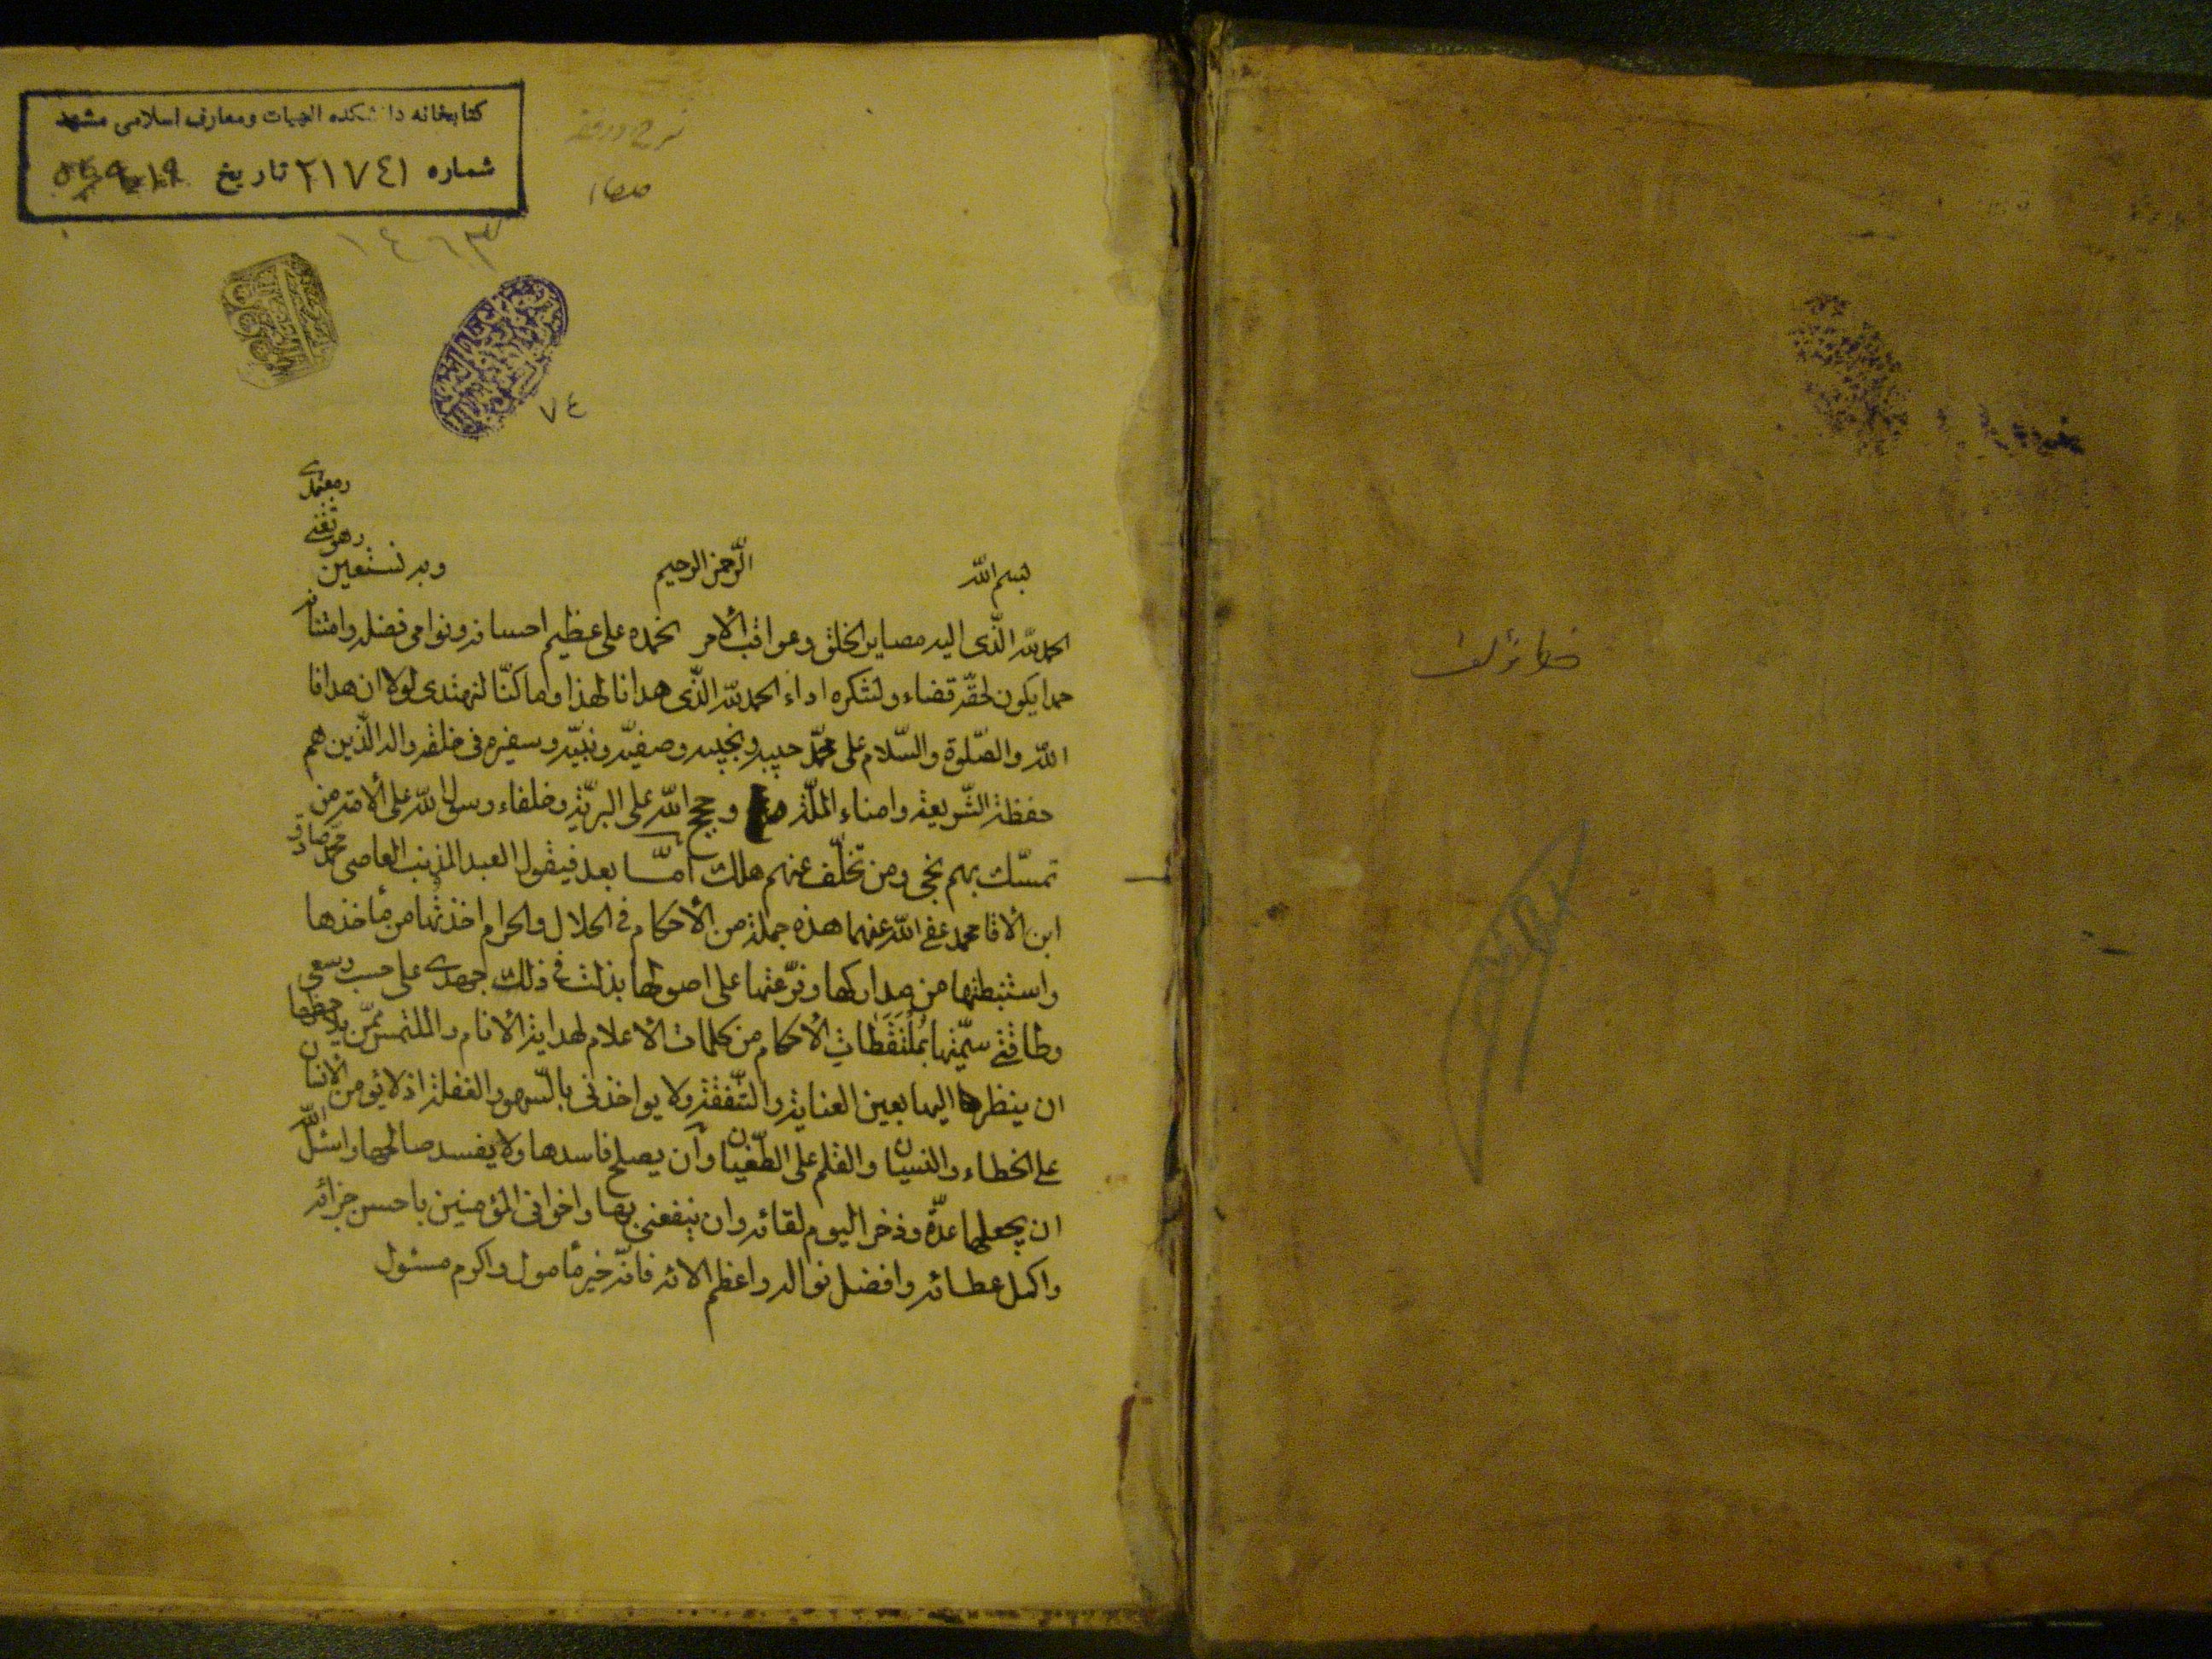 خط مؤلف
كتابخانه دانشكده الهيات ومعارف اسلامى مشهد
شماره ٢١٧٤١ تاريخ
١٤٦٣
٧٤
بسم الله الرّحمن الرحيم وبه نستعين
وهو ثقتى
ومعتمدى
الحمد لله الذّى اليه مصاير الخلق وعواقب الأمر نحمده على عظيم احسانه ونوامى فضله وامتنانه
حمدا يكون لحقّه قضاء ولشكره اداء الحمد لله الذّى هدانا لهذا وما كنّا لنهتدى لولا ان هدانا
الله والصّلوة والسّلام على محمّد حبيبه ونجيبه وصفيّه ونبيّه وسفيره فى خلقه واله الذّين هم
حفظة الشّريعة وامناء الملّة وحجج الله على البريّة وخلفاء رسول الله على الأمة من
تمسّك بهم نجى ومن تخلّف عنهم هلك امّا بعد فيقول العبد المذنب العاصى محمّد صادق
ابن الأقا محمد عفى الله عنهما هذه جملة من الأحكام فى الحلال والحرام اخذتها من مأخذها
واستنبطتها من مداركها وفرّعتها على اصولها بذلت فى ذلك جهدى على حسب وسعى
وطاقتى سمّيتها بمُلتَقَطاتِ الأحكام من كلمات الأعلام لهداية الأنام والملتمس ممّن يلاحظها
ان ينظر اليها بعين العناية والشّفقة ولا يواخذنى بالسّهو والغفلة اذ لا يؤمن الأنسان
على الخطاء والنسيان والقلم على الطّغيان وأن يصلح فاسدها ولا يفسد صالحها واسئل الله
ان يجعلها عدّة وذخرا ليوم لقائه وان ينفعنى بها واخوانى المؤمنين باحسن جزائه
واكمل عطائه وافضل نواله واعظم الائه فانّه خير مأمول واكرم مسئول